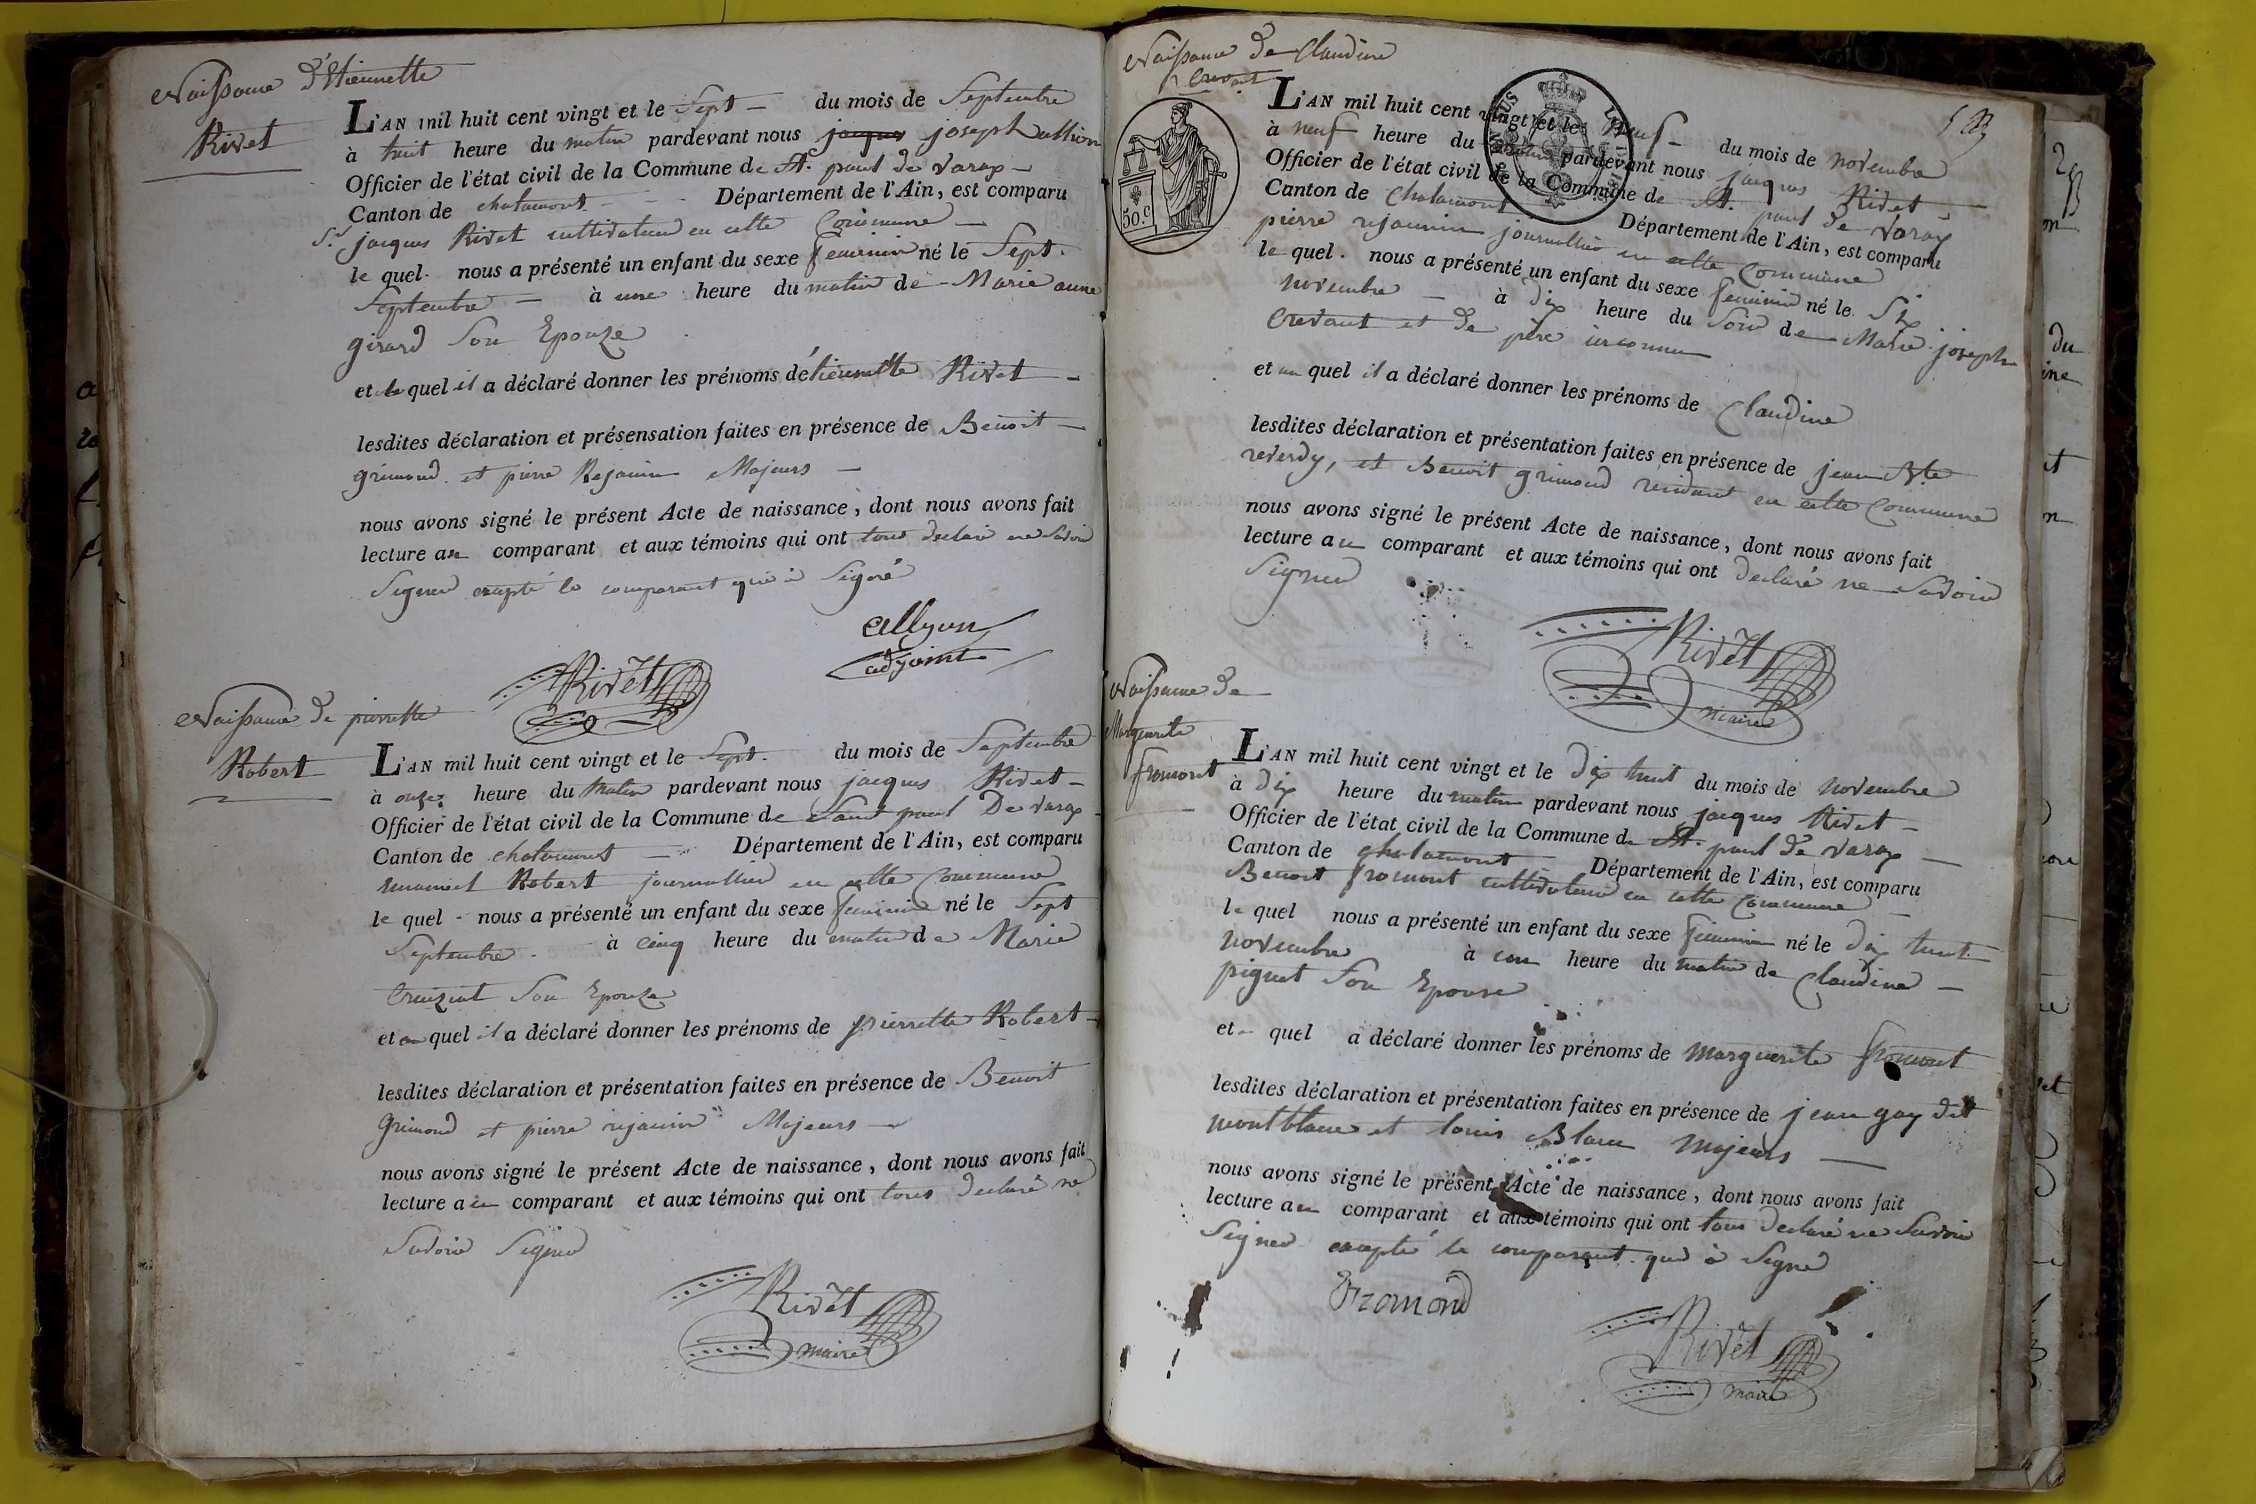 Naissance d'Etiennette
Rivet
L'AN mil huit cent vingt et le Sept du mois de Septembre
à huit heure du matin pardevant nous jacques joseph allion
Officier de l'état civil de la Commune de St. paul de varax
Canton de chalamont Département de l'Ain, est comparu
Sr jacques Rivet cultivateur en cette Commune
le quel nous a présenté un enfant du sexe feminin né le Sept
Septembre à une heure du matin de Marie anne
girard Son Epouze
et quel il a déclaré donner les prénoms détiennette Rivet
lesdites déclaration et présensation faites en présence de Benoit
grimond et pierre Rejanin Majeurs
nous avons signé le présent Acte de naissance, dont nous avons fait
lecture au comparant et aux témoins qui ont tous declaré ne Savoir
Signer excepté le comparant qui à Signé
allyon
adjoint
Rivet
Naissance de pierrette
Robert
L'AN mil huit cent vingt et le Sept du mois de Septembre
à onze heure du Matin pardevant nous jacques Rivet
Officier de l'état civil de la Commune de Saint paul De varax
Canton de chalamont Département de l'Ain, est comparu
Robert journallier en cette Commune
le quel nous a présenté un enfant du sexe feminin né le Sept
Septembre à cinq heure du matin de Marie
Son Epouze
et au quel il a déclaré donner les prénoms de pierrette Robert
lesdites déclaration et présentation faites en présence de Benoit
Grimond et pierre rejanin Majeurs
nous avons signé le présent Acte de naissance, dont nous avons fait
lecture au comparant et aux témoins qui ont tous declaré ne
Savoir Signer
Rivet
maire
Naissance de Claudine
Crevant
50.c
L'AN mil huit cent vingt et le Neuf du mois de novembre
à neuf heure du matin pardevant nous jacques Rivet
Officier de l'état civil de la Commune de St. paul de varax
Canton de Chalamont Département de l'Ain, est comparu
pierre rejanin journallier en cette Commune
le quel nous a présenté un enfant du sexe feminin né le Six
novembre à dix heure du Soir de Marie joseph
Crevant et de père inconnu
et au quel il a déclaré donner les prénoms de Claudine
lesdites déclaration et présentation faites en présence de jean Bte
reverdy, et Benoit grimond residant en cette Commune
nous avons signé le présent Acte de naissance, dont nous avons fait
lecture au comparant et aux témoins qui ont declaré ne Savoir
Signer
Rivet
maire
Naissance de
Marguerite
fromont
L'AN mil huit cent vingt et le dix huit du mois de novembre
à dix heure du matin pardevant nous jacques Rivet
Officier de l'état civil de la Commune de St. paul de varax
Canton de chalamont Département de l'Ain, est comparu
Benoit fromont cultivateur en cette Commune
le quel nous a présenté un enfant du sexe feminin né le dix huit
novembre à heure du matin de Claudine
piquet Son Epouse
et quel a déclaré donner les prénoms de marguerite fromont
lesdites déclaration et présentation faites en présence de jean gay dit
montblanc et louis Blanc majeurs
nous avons signé le présent Acte de naissance, dont nous avons fait
lecture au comparant et aux témoins qui ont tous declaré ne Savoir
Signer excepté le comparant qui à Signé
Fromond
Rivet
maire